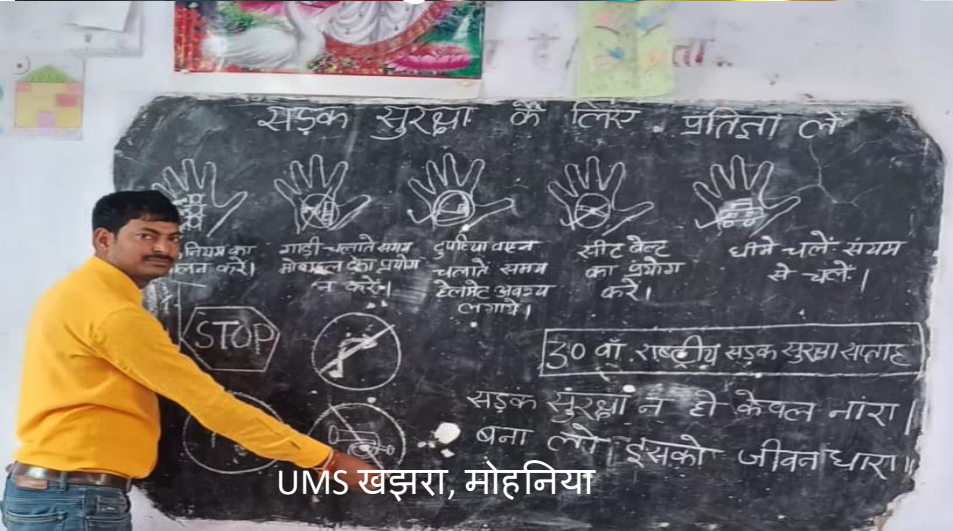 ता..
सड़क सुरक्षा के लिए प्रतिज्ञा लें
नियम का
लन करें।
गाड़ी चलाते समय
मोबाइल का प्रयोग
न करें।
दुपहिया वाहन
चलाते समय
हेलमेट अवश्य
लगायें।
सीट बेल्ट
का प्रयोग
करें।
धीमे चलें संयम
से चलें।
STOP
30 वाँ राष्ट्रीय सड़क सुरक्षा सप्ताह
सड़क सुरक्षा न हो केवल नांरा।
बना लो इसको जीवन धारा॥
UMS खेझरा, मोहनिया